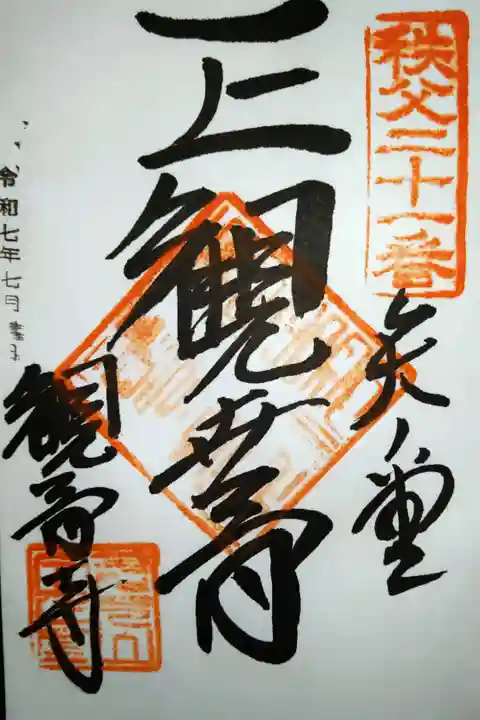 秩父二十一番
矢之堂
正観世音
観音寺
令和七年七月